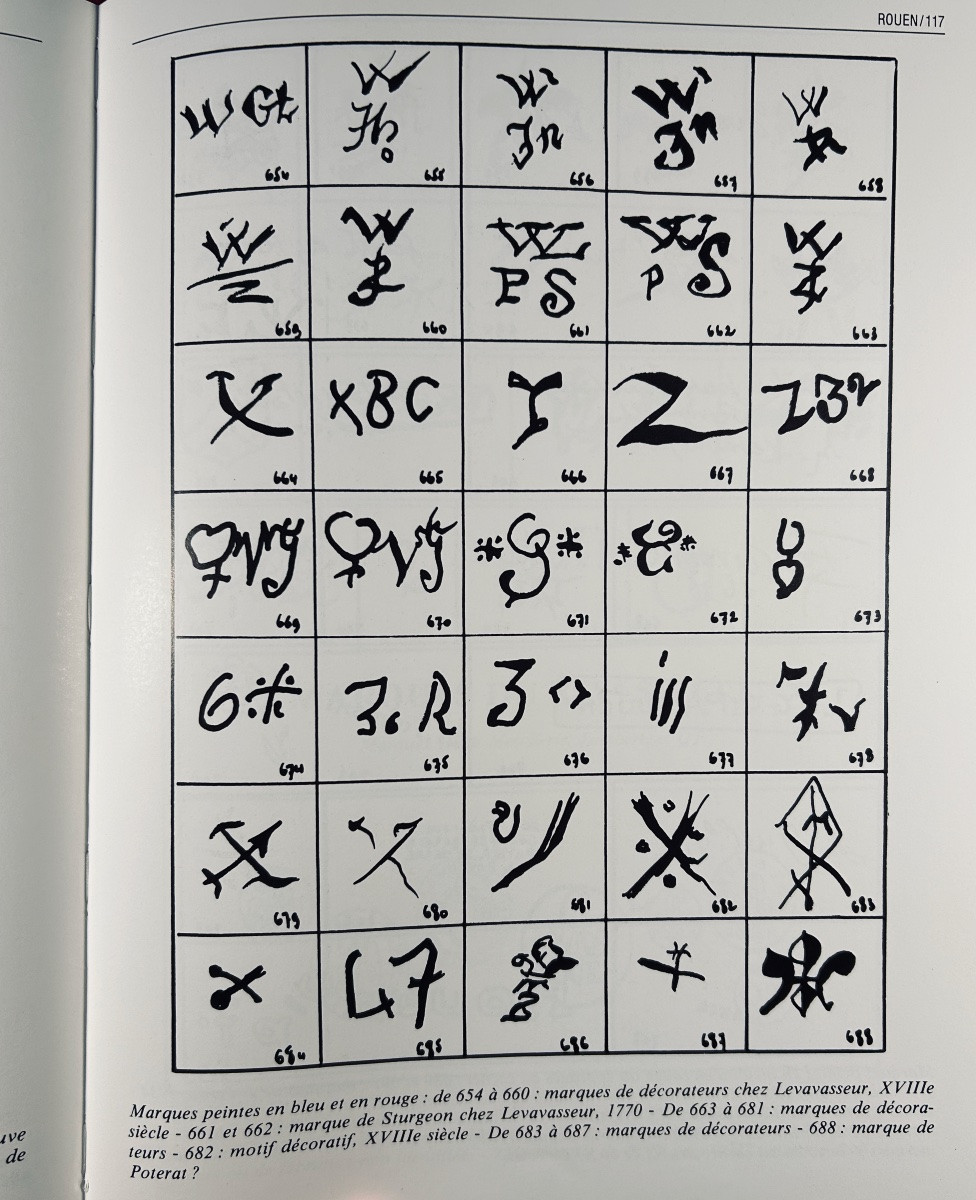 ROUEN/117
W Gt
654
W
655
W
Jn
656
W
Jn
657
W
658
W
Z
659
W
660
W
P S
661
W
P S
662
W
Z
663
X
664
XBC
665
666
Z
667
Z3
668
669
670
*G*
671
672
673
6
674
3. R
675
3 <>
676
677
678
679
680
681
682
683
684
47
685
686
687
688
Marques peintes en bleu et en rouge : de 654 à 660 : marques de décorateurs chez Levavasseur, XVIIIe
siècle - 661 et 662 : marque de Sturgeon chez Levavasseur, 1770 - De 663 à 681 : marques de décora-
teurs - 682 : motif décoratif, XVIIIe siècle - De 683 à 687 : marques de décorateurs - 688 : marque de
Poterat ?
uve
de